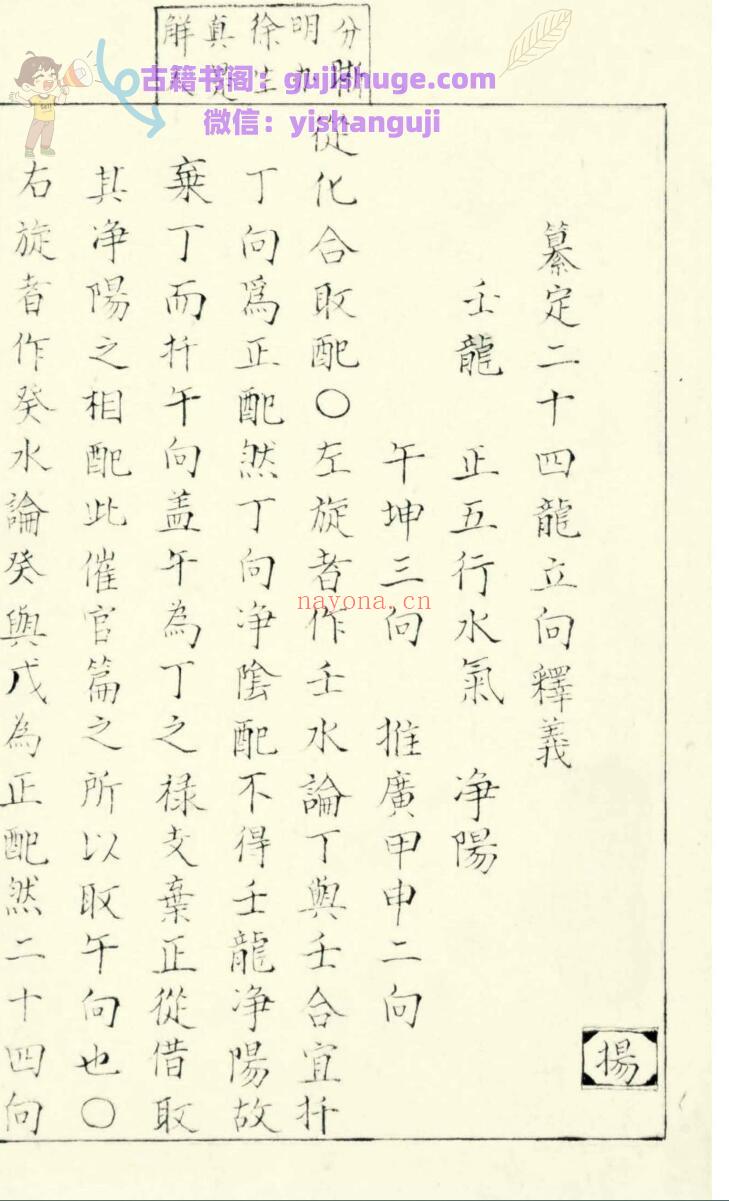 古籍书阁：gujishuge.com
微信：yishanguji
分
明
徐
真
解
揚
纂定二十四龍立向釋義
壬龍　正五行水氣　净陽
午坤三向　推廣甲申二向
從化合取配〇左旋者作壬水論丁與壬合宜扦
丁向爲正配然丁向净陰配不得壬龍净陽故
棄丁而扦午向盖午為丁之禄支棄正從借取
其净陽之相配此催官篇之所以取午向也〇
右旋者作癸水論癸與戊為正配然二十四向
nayona.cn